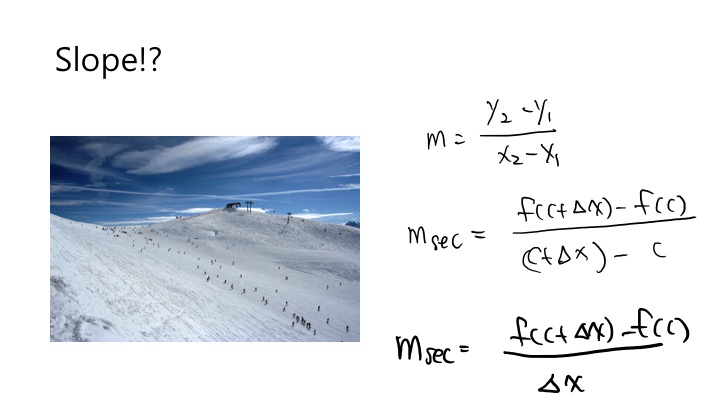 Slope!?
m = y₂ - y₁ / x₂ - x₁
m sec = f(c+Δx) - f(c) / (c+Δx) - c
m sec = f(c+Δx) - f(c) / Δx